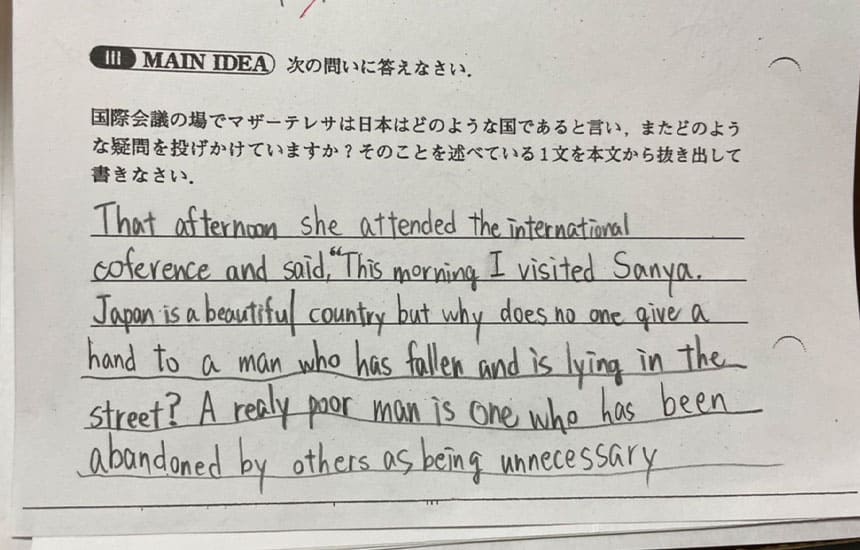 III MAIN IDEA 次の問いに答えなさい.
国際会議の場でマザーテレサは日本はどのような国であると言い, またどのよう
な疑問を投げかけていますか？そのことを述べている1文を本文から抜き出して
書きなさい.
That afternoon she attended the international
coference and said, "This morning I visited Sanya.
Japan is a beautiful country but why does no one give a
hand to a man who has fallen and is lying in the
street? A realy poor man is one who has been
abandoned by others as being unnecessary